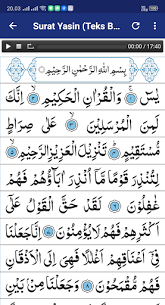 20.03
Surat Yasin (Teks B...
00:00 / 17:40
بِسْمِ اللّٰهِ الرَّحْمٰنِ الرَّحِيْمِ
يٰسۤ ۚ ﴿١﴾ وَالْقُرْاٰنِ الْحَكِيْمِ ۙ ﴿٢﴾ اِنَّكَ
لَمِنَ الْمُرْسَلِيْنَ ۙ ﴿٣﴾ عَلٰى صِرَاطٍ
مُّسْتَقِيْمٍ ۗ ﴿٤﴾ تَنْزِيْلَ الْعَزِيْزِ الرَّحِيْمِ ۙ ﴿٥﴾
لِتُنْذِرَ قَوْمًا مَّاۤ اُنْذِرَ اٰبَاۤؤُهُمْ فَهُمْ
غٰفِلُوْنَ ﴿٦﴾ لَقَدْ حَقَّ الْقَوْلُ عَلٰٓى
اَكْثَرِهِمْ فَهُمْ لَا يُؤْمِنُوْنَ ﴿٧﴾ اِنَّا جَعَلْنَا
فِيْٓ اَعْنَاقِهِمْ اَغْلٰلًا فَهِيَ اِلَى الْاَذْقَانِ
فَهُمْ مُّقْمَحُوْنَ ﴿٨﴾ وَجَعَلْنَا مِنْۢ بَيْنِ